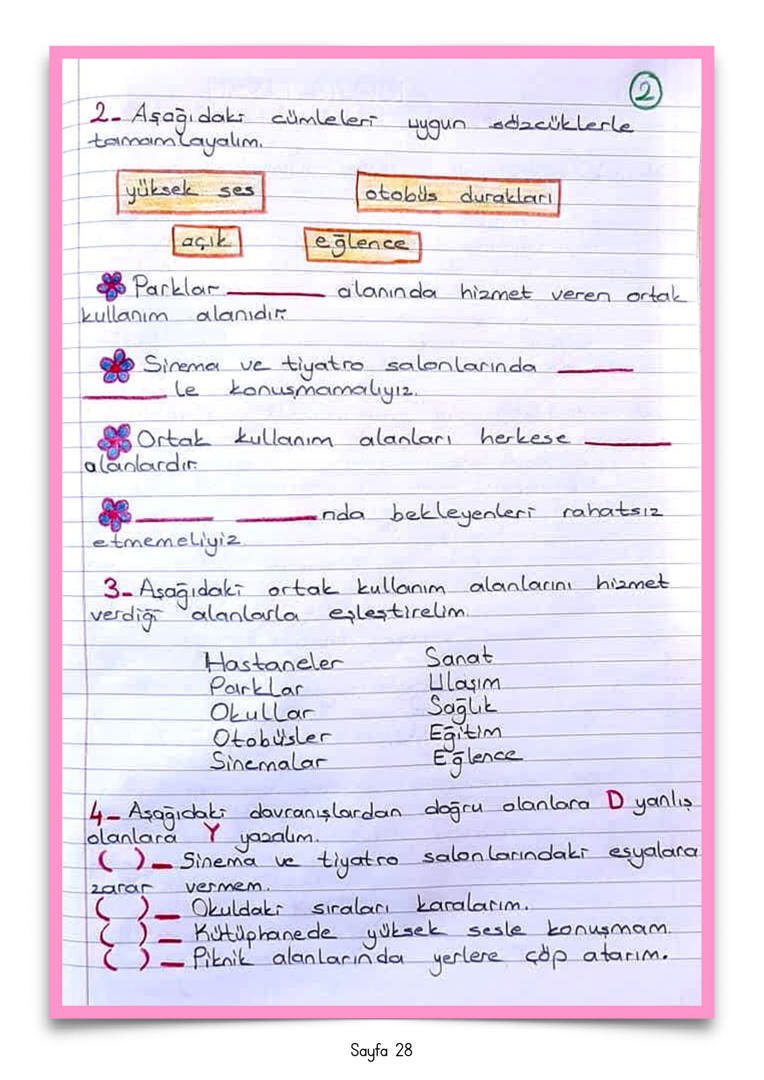 2
2- Aşağıdaki cümleleri uygun sözcüklerle
tamamlayalım.
yüksek ses
otobüs durakları
açık
eğlence
Parklar ______ alanında hizmet veren ortak
kullanım alanıdır.
Sinema ve tiyatro salonlarında ______
______ le konuşmamalıyız.
Ortak kullanım alanları herkese ______
alanlardır.
______ ______nda bekleyenleri rahatsız
etmemeliyiz.
3- Aşağıdaki ortak kullanım alanlarını hizmet
verdiği alanlarla eşleştirelim.
Hastaneler Sanat
Parklar Ulaşım
Okullar Sağlık
Otobüsler Eğitim
Sinemalar Eğlence
4- Aşağıdaki davranışlardan doğru olanlara D yanlış
olanlara Y yazalım.
( )- Sinema ve tiyatro salonlarındaki eşyalara
zarar vermem.
( )- Okuldaki sıraları karalarım.
( )- Kütüphanede yüksek sesle konuşmam.
( )- Piknik alanlarında yerlere çöp atarım.
Sayfa 28